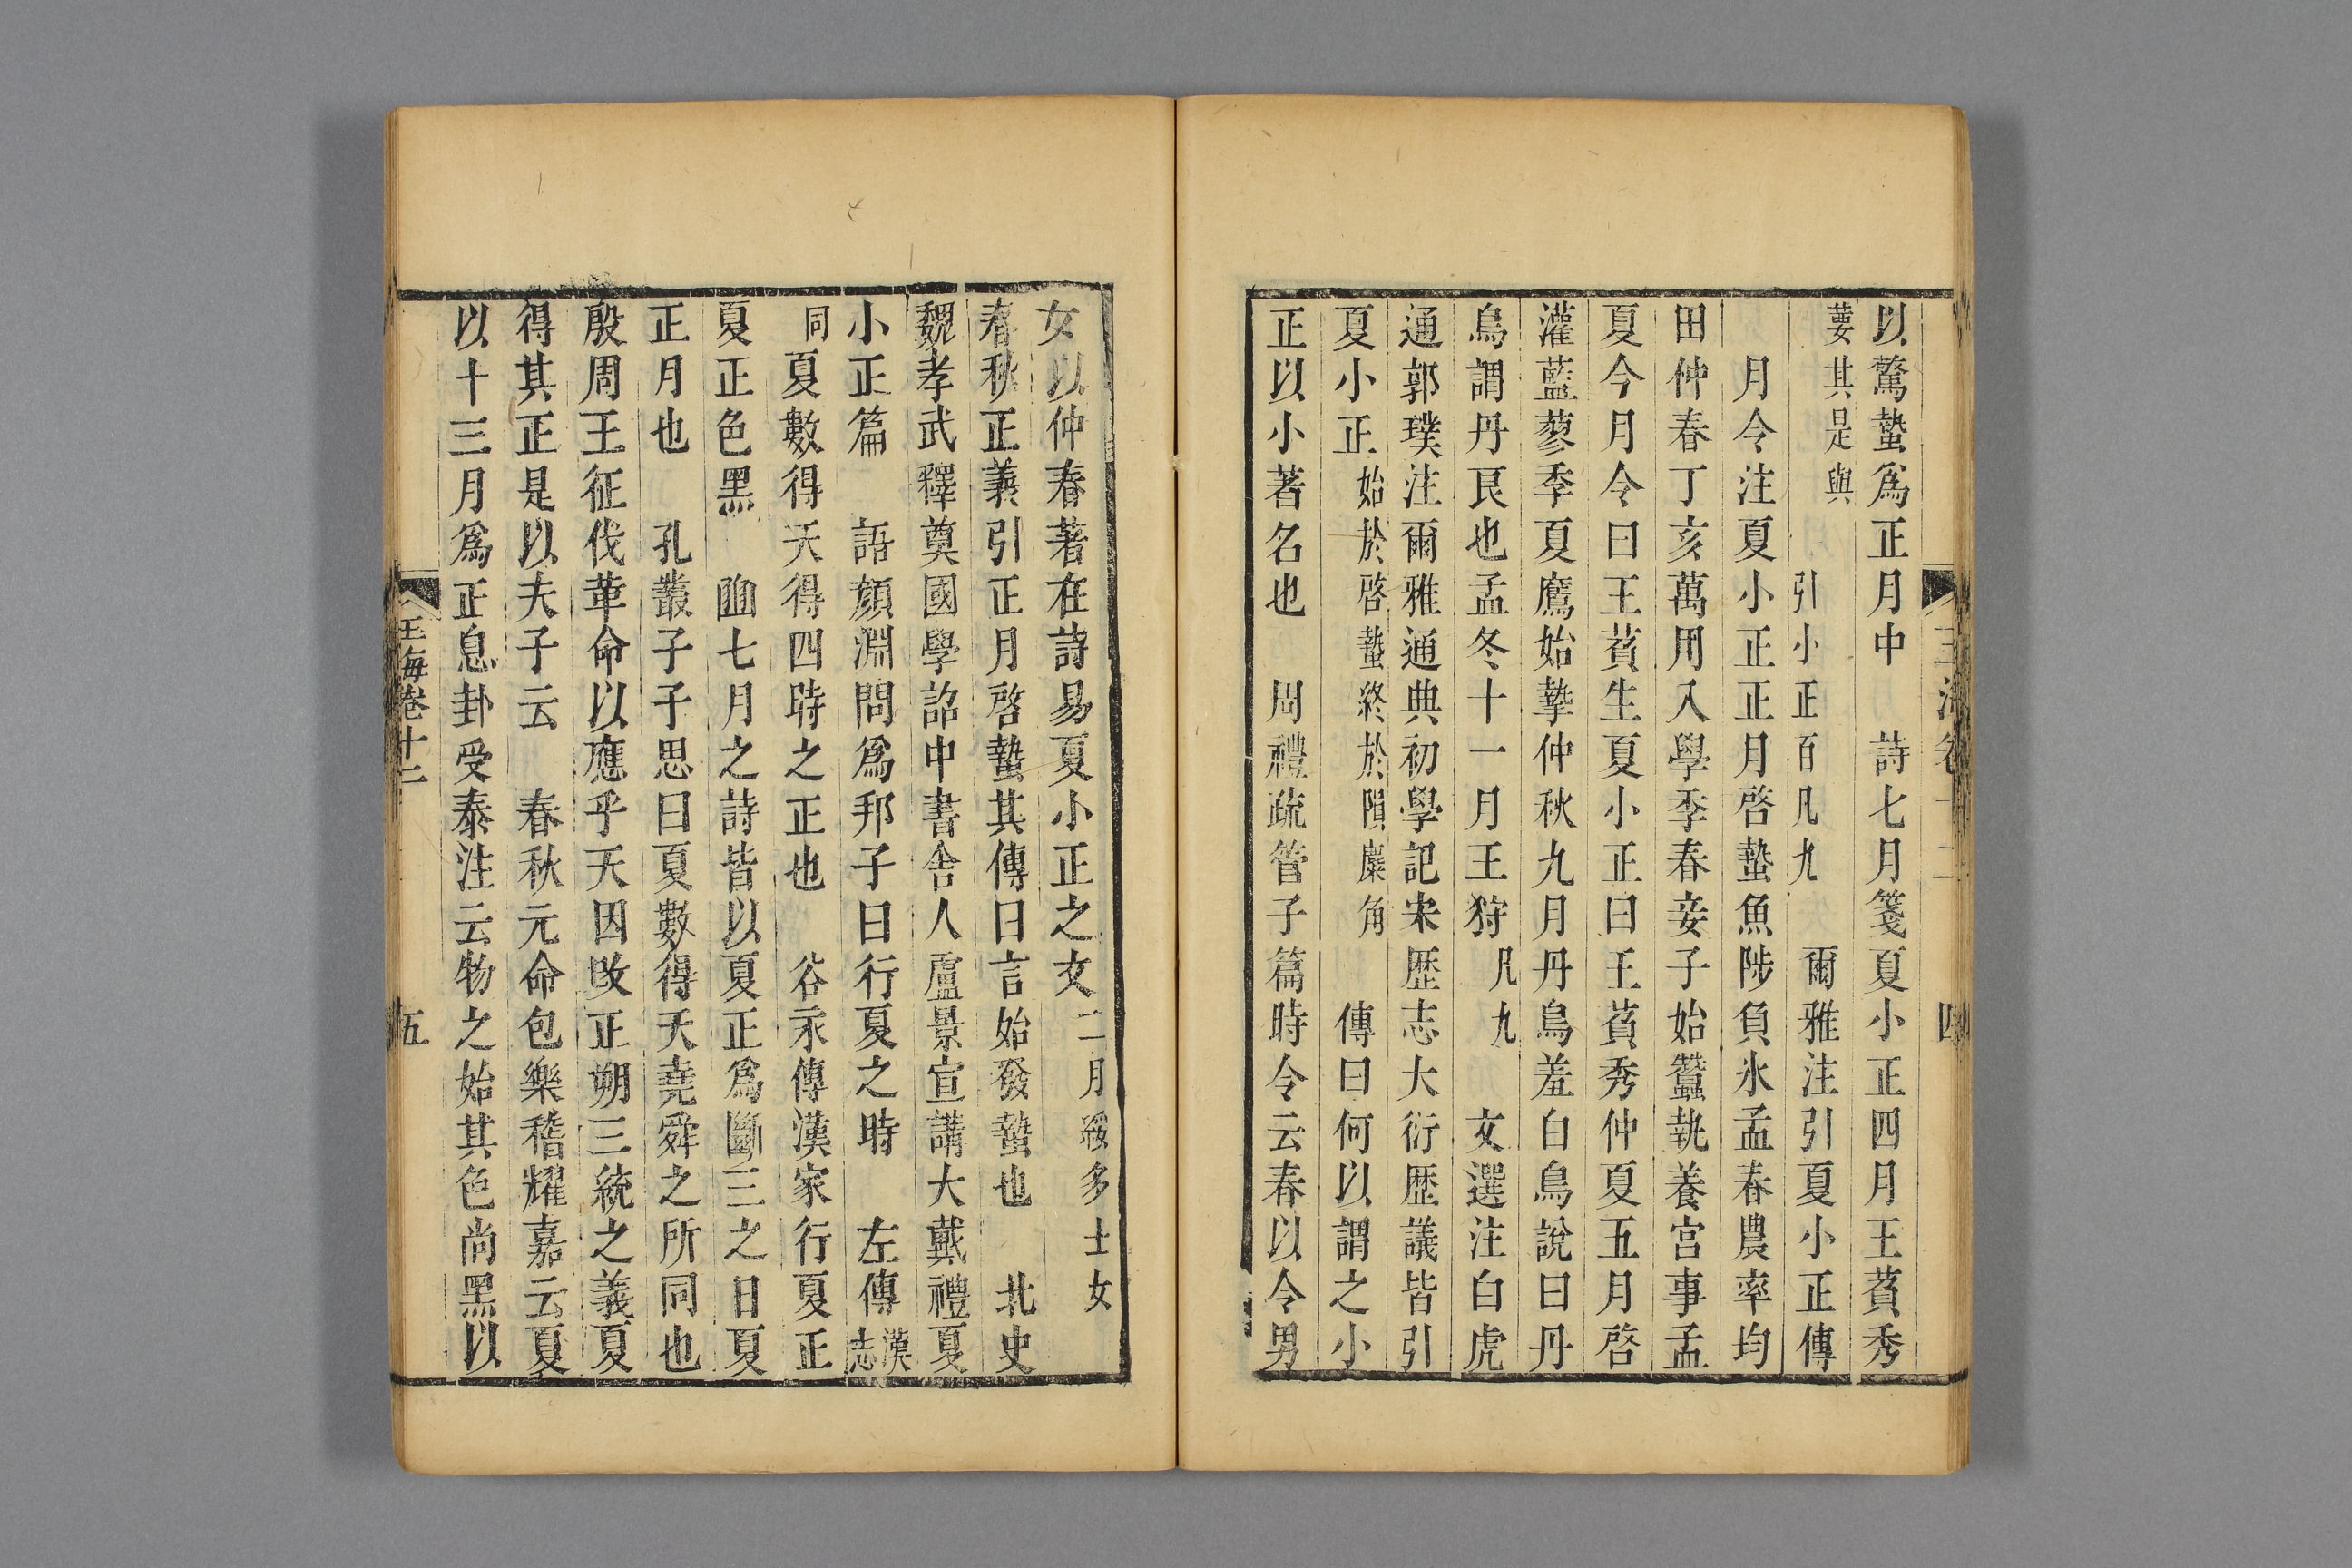 玉海卷十二 四
以驚蟄爲正月中 詩七月箋夏小正四月王萯秀
葽其是與 引小正百凡九 爾雅注引夏小正傳
月令注夏小正正月啓蟄魚陟負氷孟春農率均
田仲春丁亥萬用入學季春妾子始蠶執養宮事孟
夏今月令曰王萯生夏小正曰王萯秀仲夏五月啓
灌藍蓼季夏鷹始摯仲秋九月丹鳥羞白鳥說曰丹
鳥謂丹良也孟冬十一月王狩 凡九 文選注白虎
通郭璞注爾雅通典初學記宋歷志大衍歷議皆引
夏小正 始於啓蟄終於隕麋角 傳曰何以謂之小
正以小著名也 周禮疏管子篇時令云春以令男
女以仲春著在詩易夏小正之文 二月綏多士女
春秋正義引正月啓蟄其傳曰言始發蟄也 北史
魏孝武釋奠國學詔中書舍人盧景宣講大戴禮夏
小正篇 語顏淵問爲邦子曰行夏之時 左傳 漢志
同 夏數得天得四時之正也 谷永傳漢家行夏正
夏正色黑 豳七月之詩皆以夏正爲斷三之日夏
正月也 孔叢子子思曰夏數得天堯舜之所同也
殷周王征伐革命以應乎天因改正朔三統之義夏
得其正是以夫子云 春秋元命包樂稽耀嘉云夏
以十三月爲正息卦受泰注云物之始其色尚黑以
玉海卷十二 五